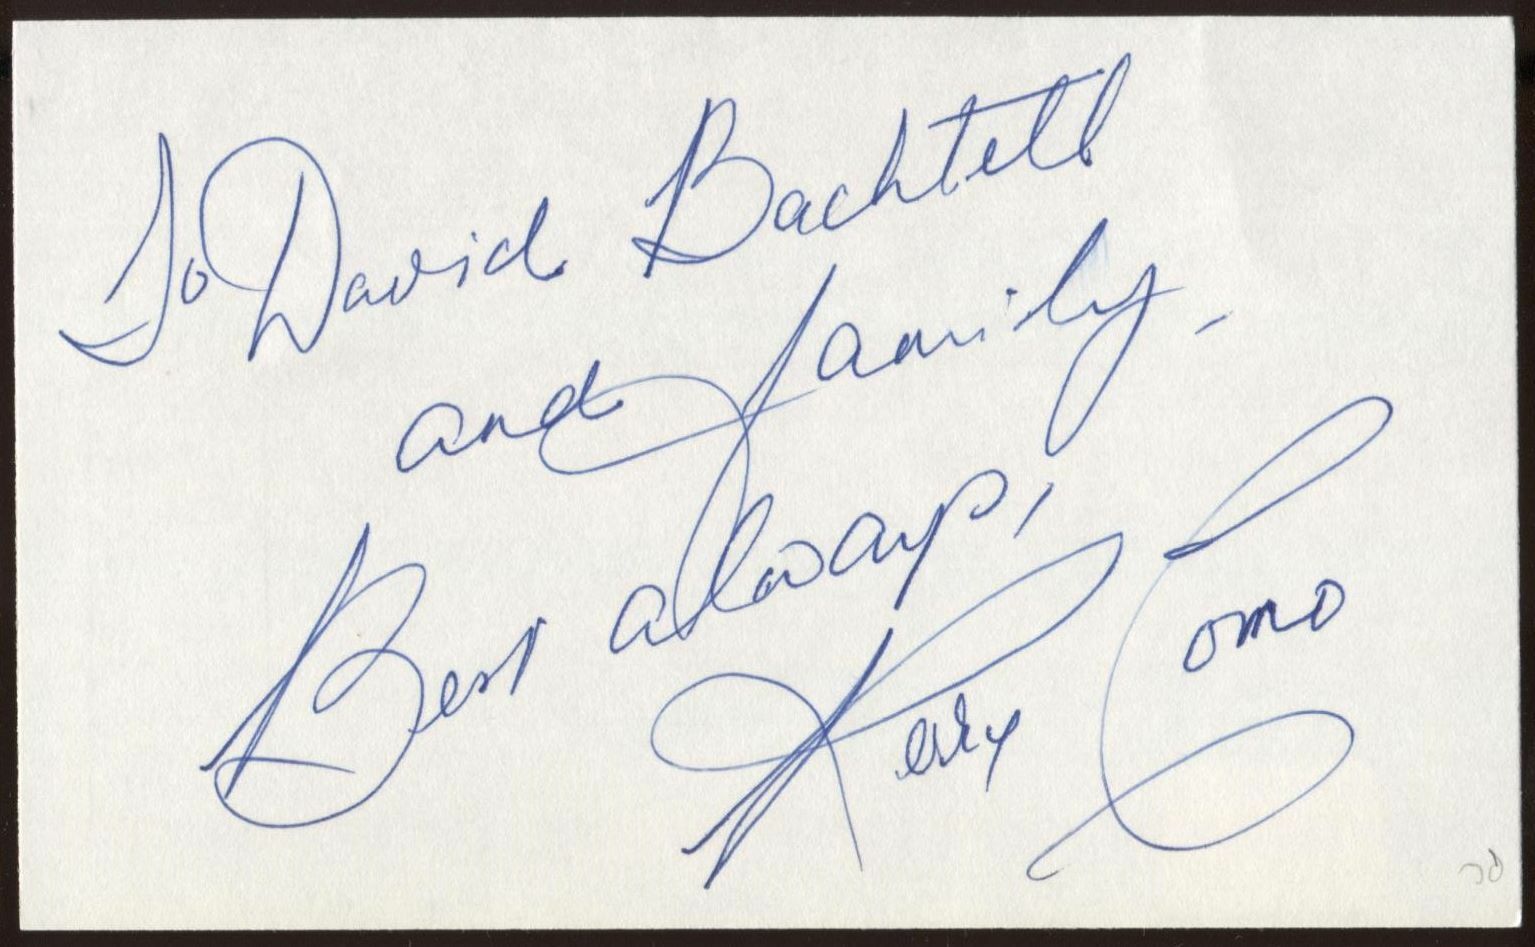 To David Bachtell
and family -
Best always,
Perry Como